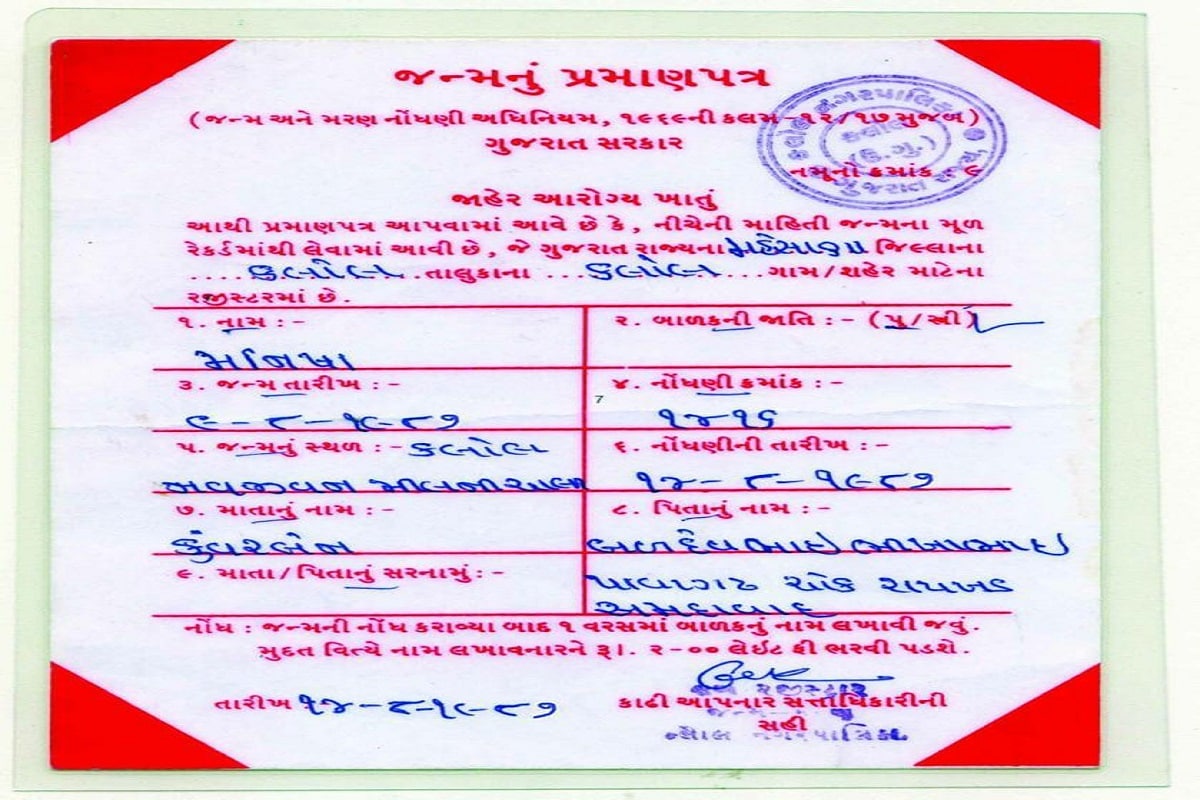 જન્મનું પ્રમાણપત્ર
(જન્મ અને મરણ નોંધણી અધિનિયમ, ૧૯૬૯ની કલમ-૧૨/૧૭ મુજબ)
ગુજરાત સરકાર
કલોલ નગરપાલિકા
કલોલ
(ઉ.ગુ.)
ગુજરાત રાજ્ય
નમૂનો ક્રમાંક : ૯
જાહેર આરોગ્ય ખાતું
આથી પ્રમાણપત્ર આપવામાં આવે છે કે, નીચેની માહિતી જન્મના મૂળ
રેકર્ડમાંથી લેવામાં આવી છે, જે ગુજરાત રાજ્યના મહેસાણા જિલ્લાના
....કલોલ..તાલુકાના ...કલોલ...ગામ/શહેર માટેના
રજીસ્ટરમાં છે.
૧. નામ :-
૨. બાળકની જાતિ :- (પુ/સ્ત્રી)
મનિષા
૩. જન્મ તારીખ :-
૪. નોંધણી ક્રમાંક :-
7
૯-૮-૧૯૮૭
૧૪૧૬
૫. જન્મનું સ્થળ :- કલોલ
૬. નોંધણીની તારીખ :-
નવજીવન મીલની ચાલી
૧૪-૮-૧૯૮૭
૭. માતાનું નામ :-
૮. પિતાનું નામ :-
કુંવરબેન
બળદેવભાઇ ભીખાભાઇ
૯. માતા/પિતાનું સરનામું :-
ચોક રાયખડ
અમદાવાદ
નોંધ : જન્મની નોંધ કરાવ્યા બાદ ૧ વરસમાં બાળકનું નામ લખાવી જવું.
મુદત વિત્યે નામ લખાવનારને રૂા. ૨-૦૦ લેઇટ ફી ભરવી પડશે.
તારીખ ૧૪-૮-૧૯૮૭
કાઢી આપનાર સત્તાધિકારીની
સહી
નગરપાલિકા